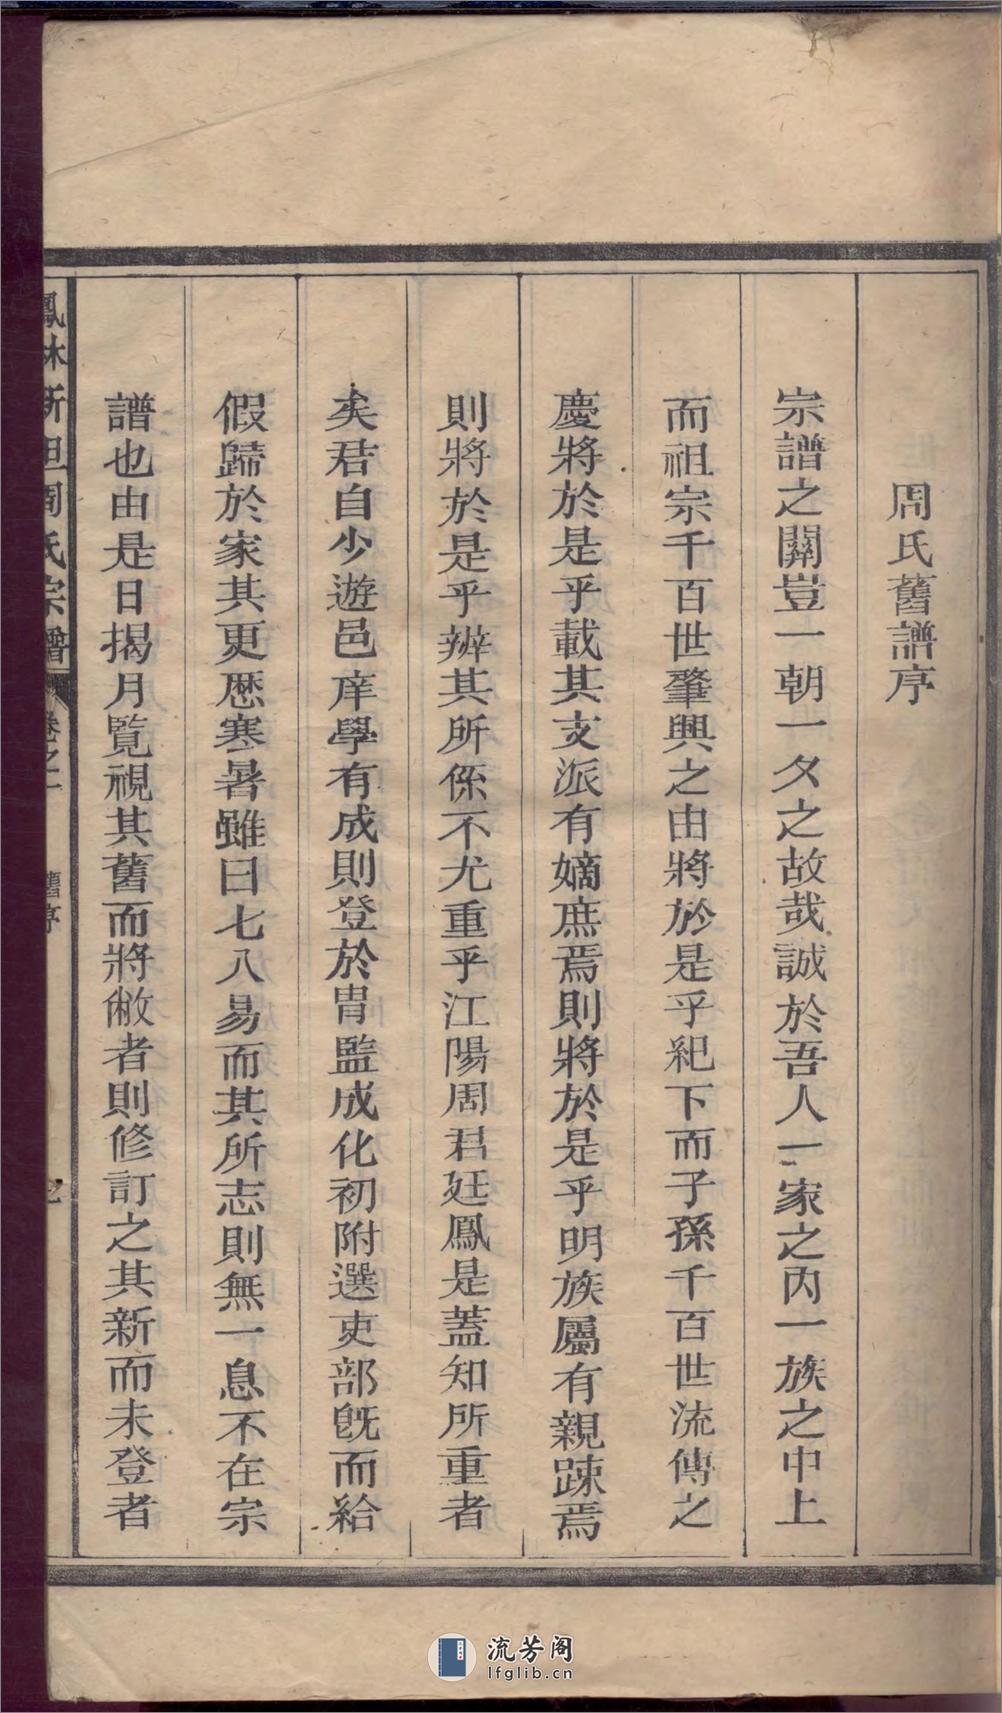 周氏舊譜序
宗譜之關豈一朝一夕之故哉誠於吾人一家之內一族之中上
而祖宗千百世肇興之由將於是乎紀下而子孫千百世流傳之
慶將於是乎載其支派有嫡庶焉則將於是乎明族屬有親踈焉
則將於是乎辨其所係不尤重乎江陽周君廷鳳是蓋知所重者
矣君自少遊邑庠學有成則登於胄監成化初附選吏部旣而給
假歸於家其更歷寒暑雖曰七八易而其所志則無一息不在宗
譜也由是日揭月覽視其舊而將敝者則修訂之其新而未登者
鳳林新亘周氏宗譜 卷之一 舊序
流芳阁
lfglib.cn